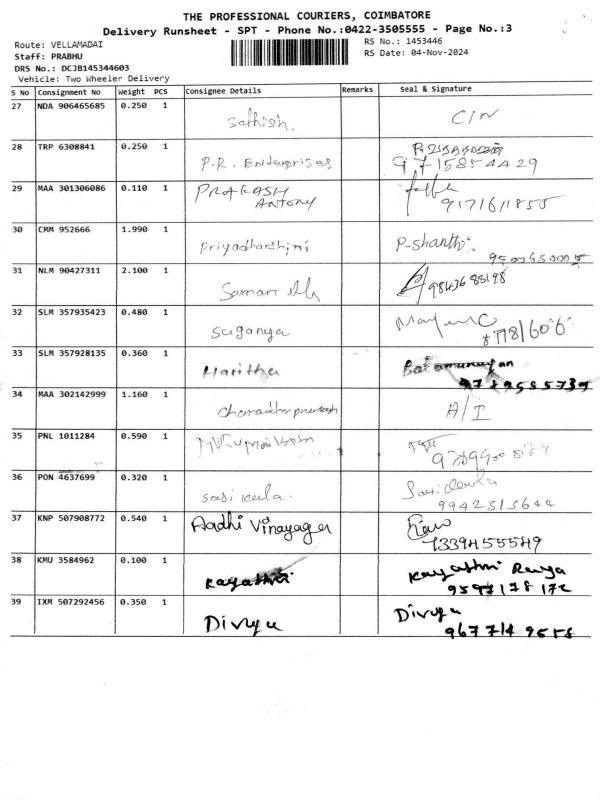 THE PROFESSIONAL COURIERS, COIMBATORE
Delivery Runsheet - SPT - Phone No.:0422-3505555 - Page No.:3
Route: VELLAMADAI RS No.: 1453446
Staff: PRABHU RS Date: 04-Nov-2024
DRS No.: DCJB145344603
Vehicle: Two Wheeler Delivery
S No Consignment No Weight PCS Consignee Details Remarks Seal & Signature
27 NDA 906465685 0.250 1 Sathish. C/N
28 TRP 6308841 0.250 1 P.R. Enterprises 9715854429
29 MAA 301306086 0.110 1 PRAKASH
ANTONY 9171611855
30 CMM 952666 1.990 1 Priyadharshini P-Shanthi
31 NLM 90427311 2.100 1 9843685198
32 SLM 357935423 0.480 1 Suganya
33 SLM 357928135 0.360 1 Haritha
9789585739
34 MAA 302142999 1.160 1 A/I
35 PNL 1011284 0.590 1
36 PON 4637699 0.320 1 Sasikala. Sasikala
9942313644
37 KNP 507908772 0.540 1 Aadhi Vinayaga
7339455549
38 KMU 3584962 0.100 1 Kayathri Kayathri Raya
9597178172
39 IXM 507292456 0.350 1 Divya Divya
967714 9558